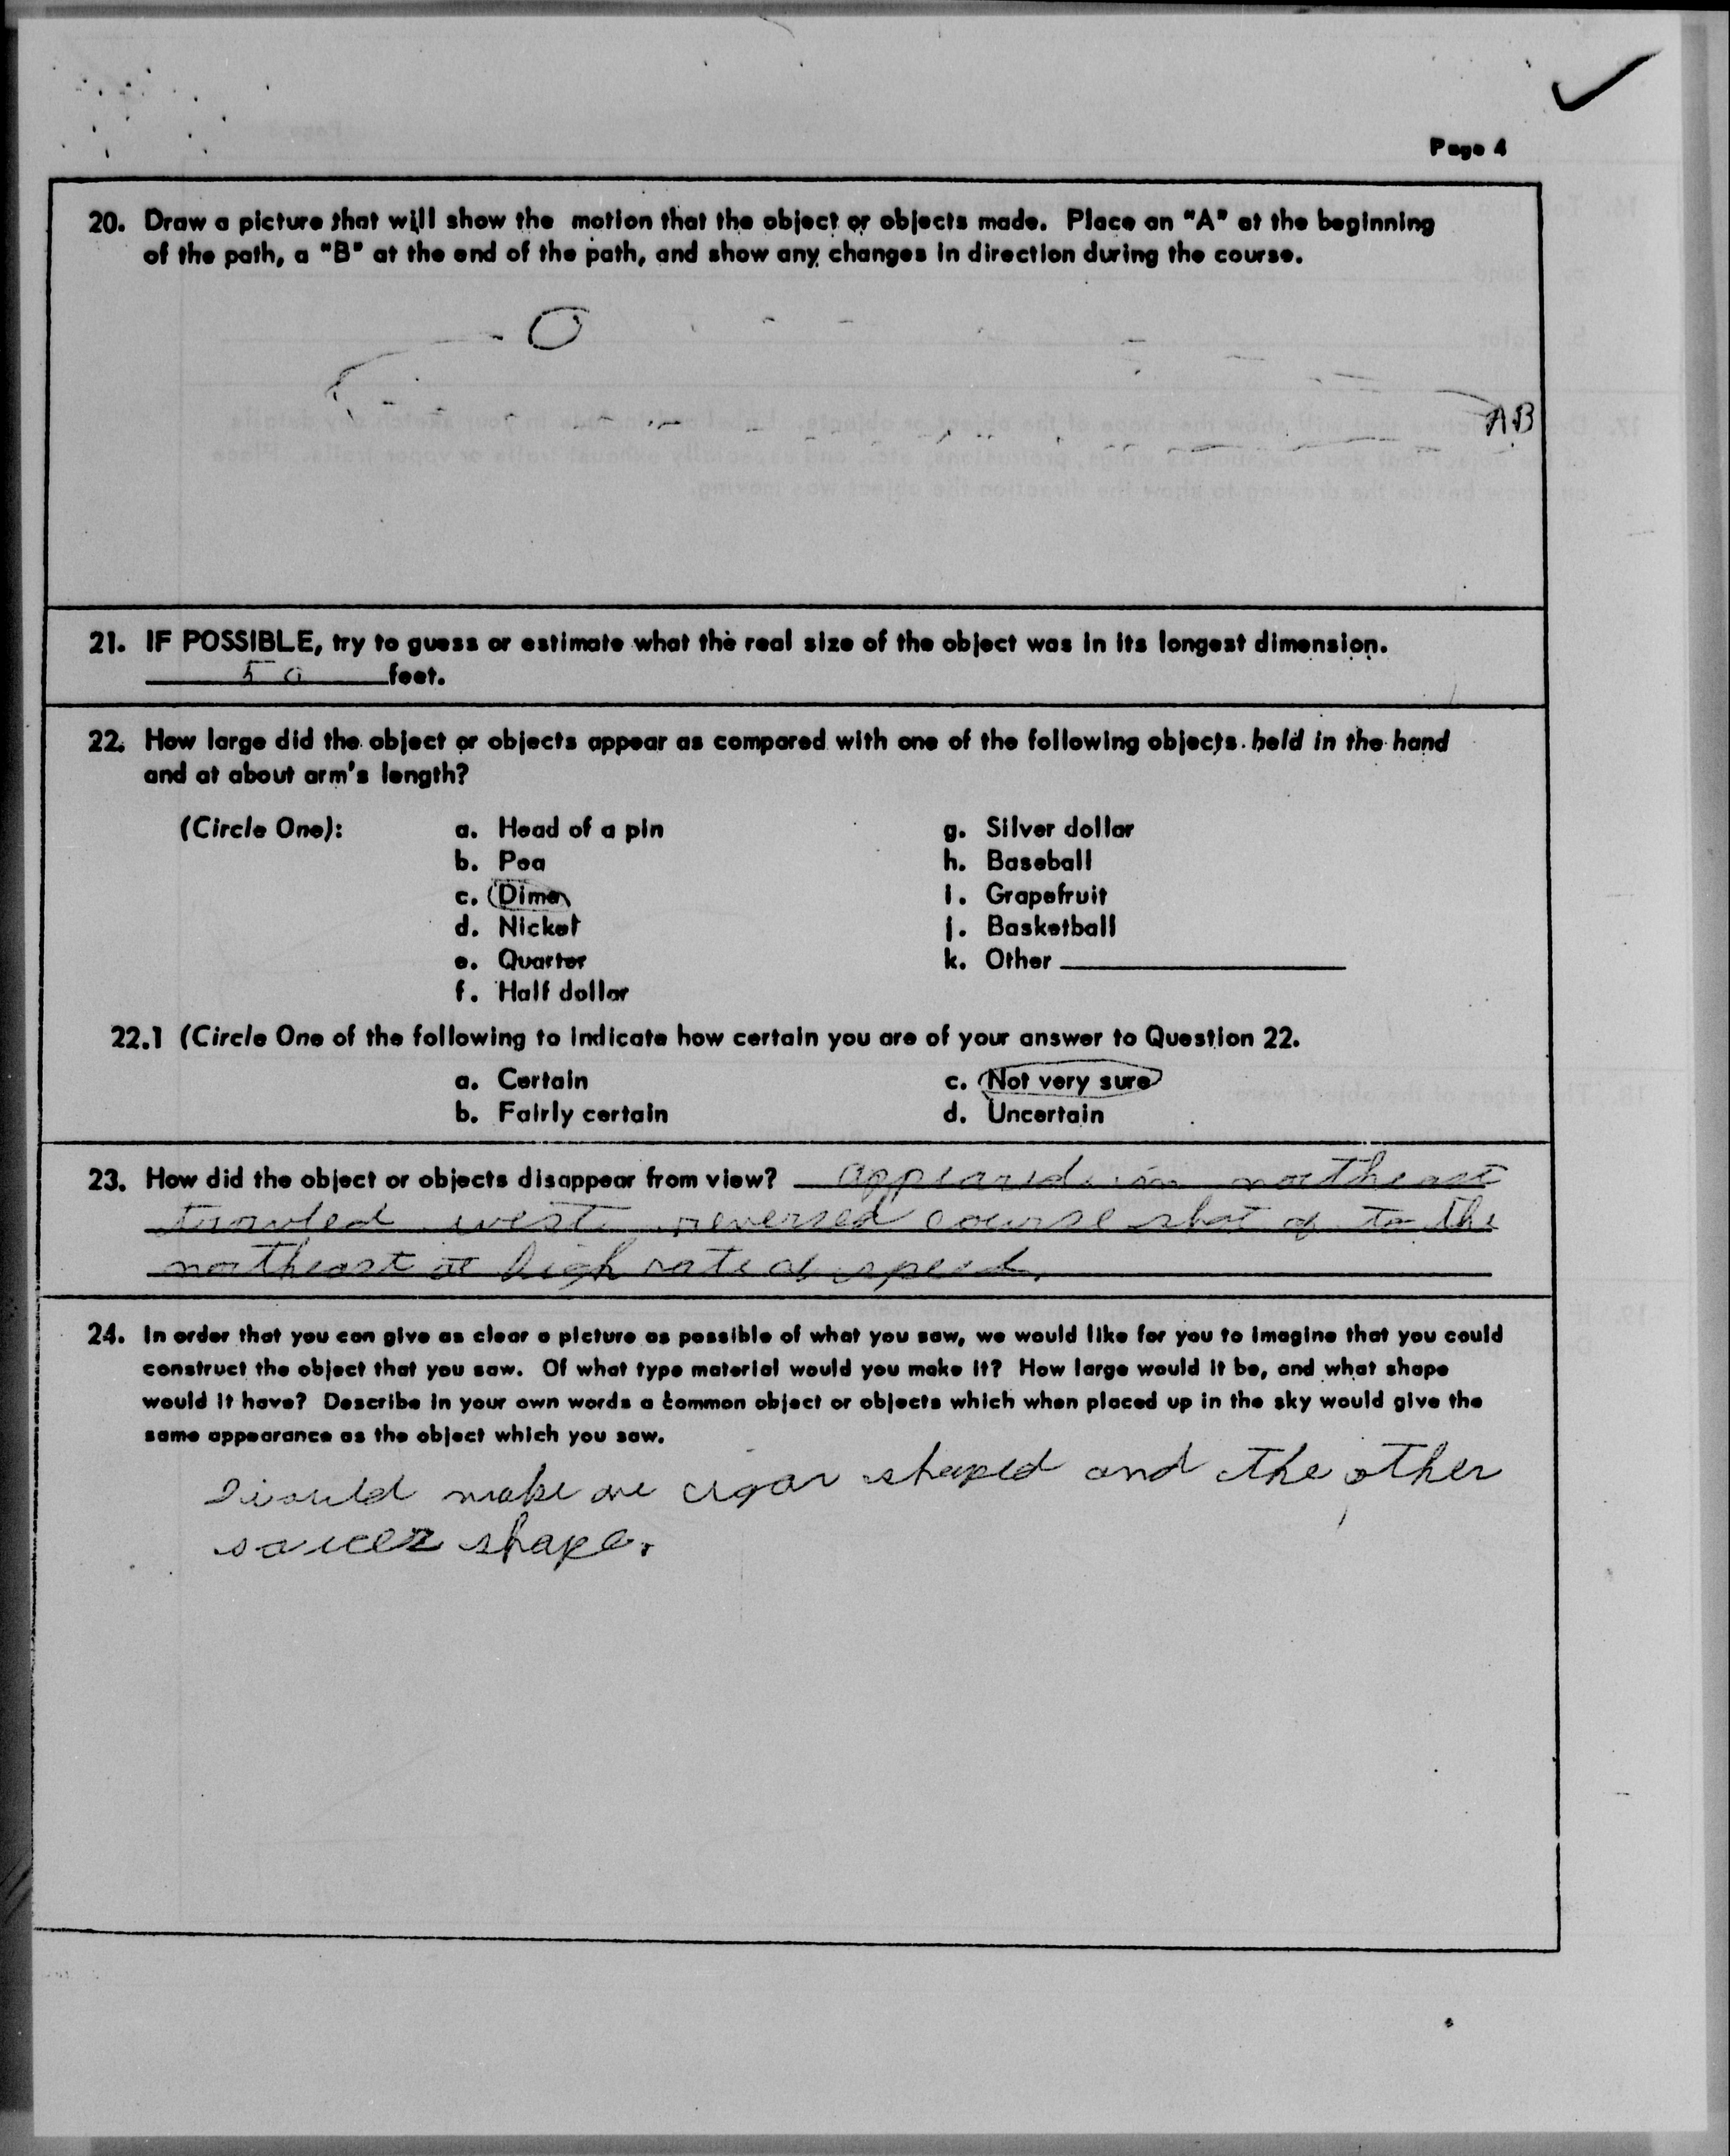 Page 4
20. Draw a picture that will show the motion that the object or objects made. Place an "A" at the beginning
of the path, a "B" at the end of the path, and show any changes in direction during the course.
A.B
21. IF POSSIBLE, try to guess or estimate what the real size of the object was in its longest dimension.
50 feet.
22. How large did the object or objects appear as compared with one of the following objects held in the hand
and at about arm's length?
(Circle One): a. Head of a pin g. Silver dollar
b. Pea h. Baseball
c. Dime i. Grapefruit
d. Nickel j. Basketball
e. Quarter k. Other
f. Half dollar
22.1 (Circle One of the following to indicate how certain you are of your answer to Question 22.
a. Certain c. Not very sure
b. Fairly certain d. Uncertain
23. How did the object or objects disappear from view? appeared in northeast
traveled west reversed course shot of to the
northeast at high rate of speed.
24. In order that you can give as clear a picture as possible of what you saw, we would like for you to imagine that you could
construct the object that you saw. Of what type material would you make it? How large would it be, and what shape
would it have? Describe in your own words a common object or objects which when placed up in the sky would give the
same appearance as the object which you saw.
I would make one cigar shaped and the other
saucer shape.